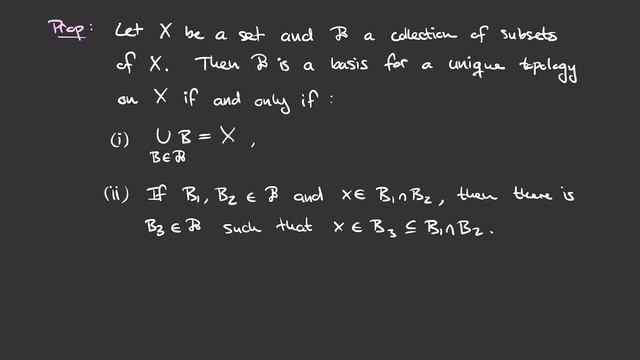 Prop: Let X be a set and ℬ a collection of subsets
of X. Then ℬ is a basis for a unique topology
on X if and only if:
(i) ∪ B = X,
B∈ℬ
(ii) If B₁, B₂ ∈ ℬ and x ∈ B₁∩B₂, then there is
B₃ ∈ ℬ such that x ∈ B₃ ⊆ B₁∩B₂.